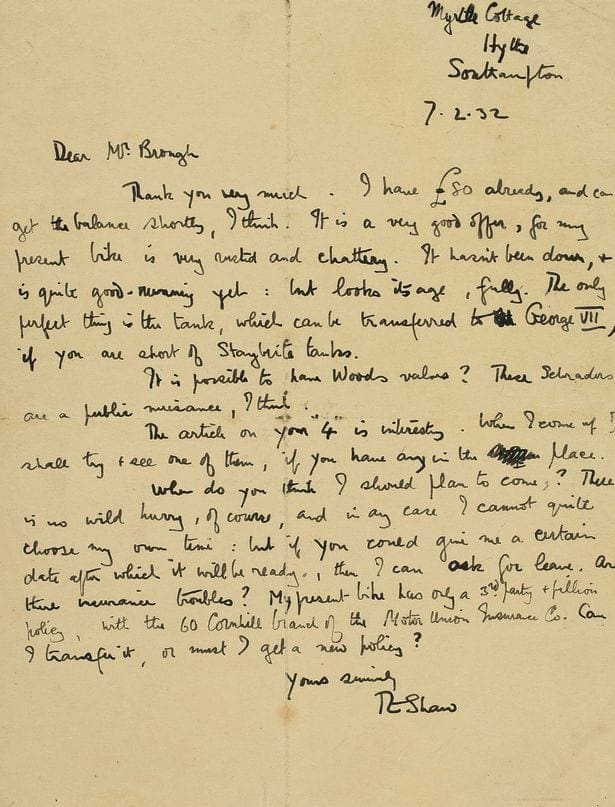 Myrtle Cottage
Hythe
Southampton
7.2.32
Dear Mr. Brough
Thank you very much. I have £80 already, and can
get the balance shortly, I think. It is a very good offer, for my
present bike is very rusted and chattery. It hasn't been down, +
is quite good-running yet: but looks its age, fully. The only
perfect thing is the tank, which can be transferred to George VII,
if you are short of Staybrite tanks.
It is possible to have Woods valves? These Schraders
are a public nuisance, I think.
The article on your "4" is interesting. When I come up I
shall try + see one of them, if you have any in the place.
When do you think I should plan to come,? There
is no wild hurry, of course, and in any case I cannot quite
choose my own time: but if you could give me a certain
date after which it will be ready., then I can ask for leave. Ar
there insurance troubles? My present bike has only a 3rd party + pillion
policy, with the 60 Cornhill branch of the Motor Union Insurance Co. Can
I transfer it, or must I get a new policy?
Yours sincerely
TEShaw